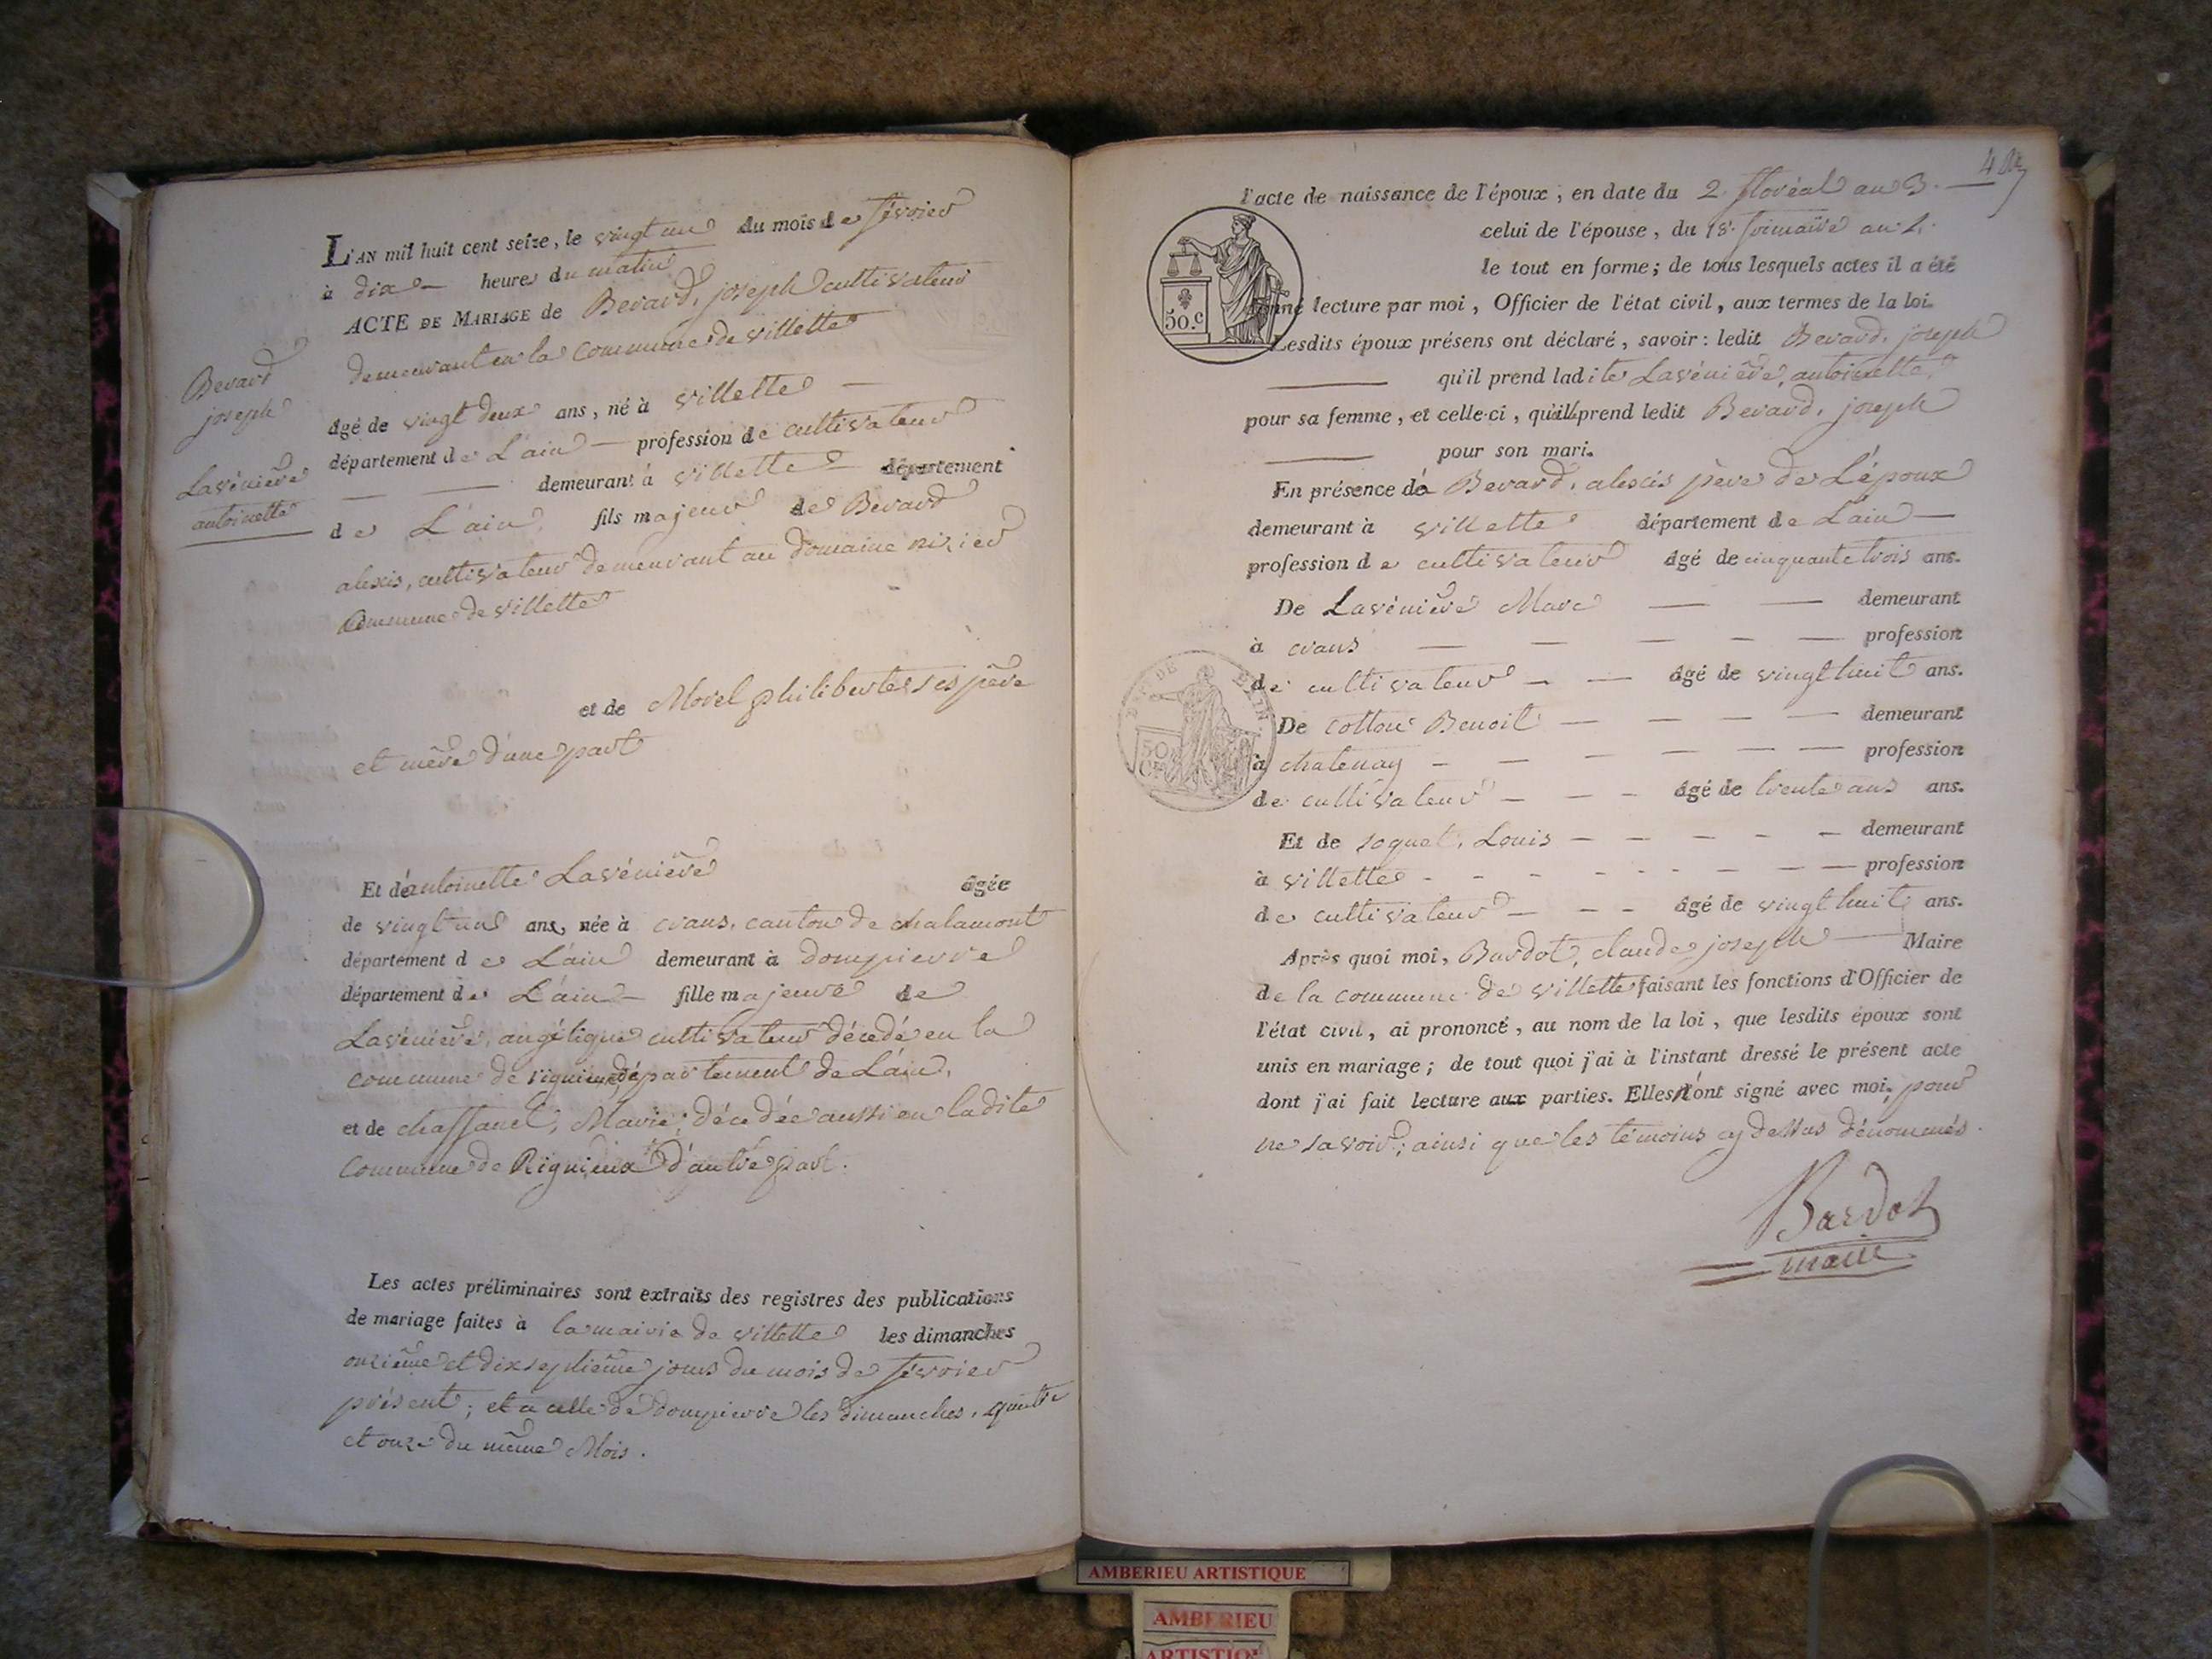 L'AN mil huit cent seize, le vingt un du mois de février
à dix heures du matin
ACTE DE MARIAGE de Berard, joseph cultivateur
demeurant en la commune de villette
Berard
joseph
Lavénière
antoinette
âgé de vingt deux ans, né à villette
département de L'ain profession de cultivateur
demeurant à villette département
de L'ain fils majeur de Berard
alexis, cultivateur demeurant au domaine nizier
Commune de villette
et de Morel philiberte ses père
et mère d'une part
Et de antoinette Lavénière âgée
de vingt un ans, née à crans, canton de chalamont
département de L'ain demeurant à dompierre
département de L'ain fille majeure de
Lavénière, angélique cultivateur décédé en la
commune de rignieux département de L'ain,
et de chassanel, Marie; décédée aussi en ladite
commune de Rignieux d'autre part.
Les actes préliminaires sont extraits des registres des publications
de mariage faites à la mairie de villette les dimanches
onzième et dixseptième jours du mois de février
présent; et à celle de dompierre les dimanches, quatre
et onze du même Mois.
l'acte de naissance de l'époux, en date du 2. floréal an 3.
celui de l'épouse, du 18. frimaire an
le tout en forme; de tous lesquels actes il a été
donné lecture par moi, Officier de l'état civil, aux termes de la loi.
50.c
Lesdits époux présens ont déclaré, savoir: ledit Berard, joseph
qu'il prend ladite Lavénière, antoinette
pour sa femme, et celle-ci, qu'ill prend ledit Berard, joseph
pour son mari.
En présence de Berard, alexis père de L'époux
demeurant à villette département de L'ain
profession de cultivateur âgé de cinquante trois ans.
De Lavénière Marc demeurant
à crans profession
de cultivateur âgé de vingt huit ans.
De cotton Benoit demeurant
à chatenay profession
50
de cultivateur âgé de trente ans ans.
Et de soquet, Louis demeurant
à villette profession
de cultivateur âgé de vingt huit ans.
Après quoi moi, Bardot, claude joseph Maire
de la commune de villette faisant les fonctions d'Officier de
l'état civil, ai prononcé, au nom de la loi, que lesdits époux sont
unis en mariage; de tout quoi j'ai à l'instant dressé le présent acte
dont j'ai fait lecture aux parties. Elles n'ont signé avec moi, pour
ne savoir; ainsi que les témoins cy dessus dénommés.
Bardot
maire
AMBERIEU ARTISTIQUE
AMBERIEU
ARTISTIQUE